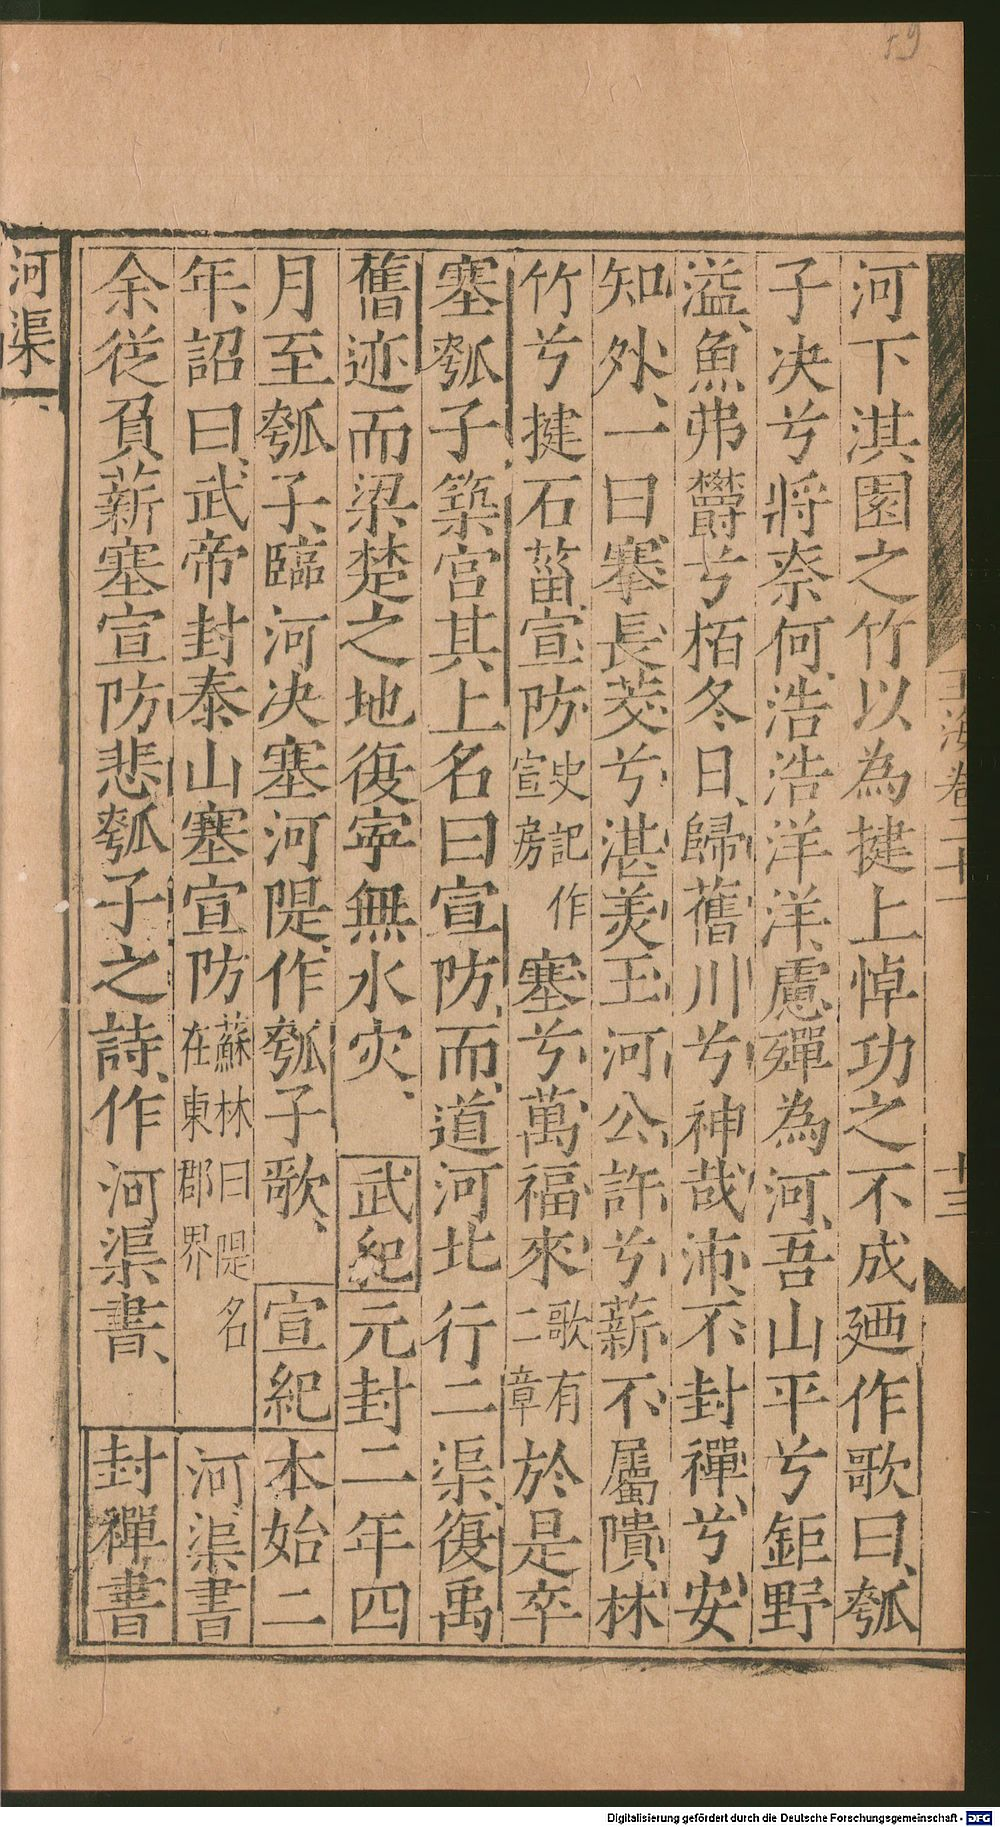 59
玉海卷二十一
十三
河下淇園之竹以為揵上悼功之不成廼作歌曰瓠
子决兮將奈何浩浩洋洋慮殫為河吾山平兮鉅野
溢魚弗欝兮栢冬日歸舊川兮神哉沛不封禪兮安
知外一曰搴長茭兮湛美玉河公許兮薪不屬隤林
竹兮揵石菑宣防史記作宣房塞兮萬福來歌有二章於是卒
塞瓠子築宮其上名曰宣防而道河北行二渠復禹
舊迹而梁楚之地復寧無水灾武紀元封二年四
月至瓠子臨河决塞河隄作瓠子歌宣紀本始二
年詔曰武帝封泰山塞宣防蘇林曰隄名在東郡界河渠書
余從負薪塞宣防悲瓠子之詩作河渠書封禪書
河渠
Digitalisierung gefördert durch die Deutsche Forschungsgemeinschaft - DFG